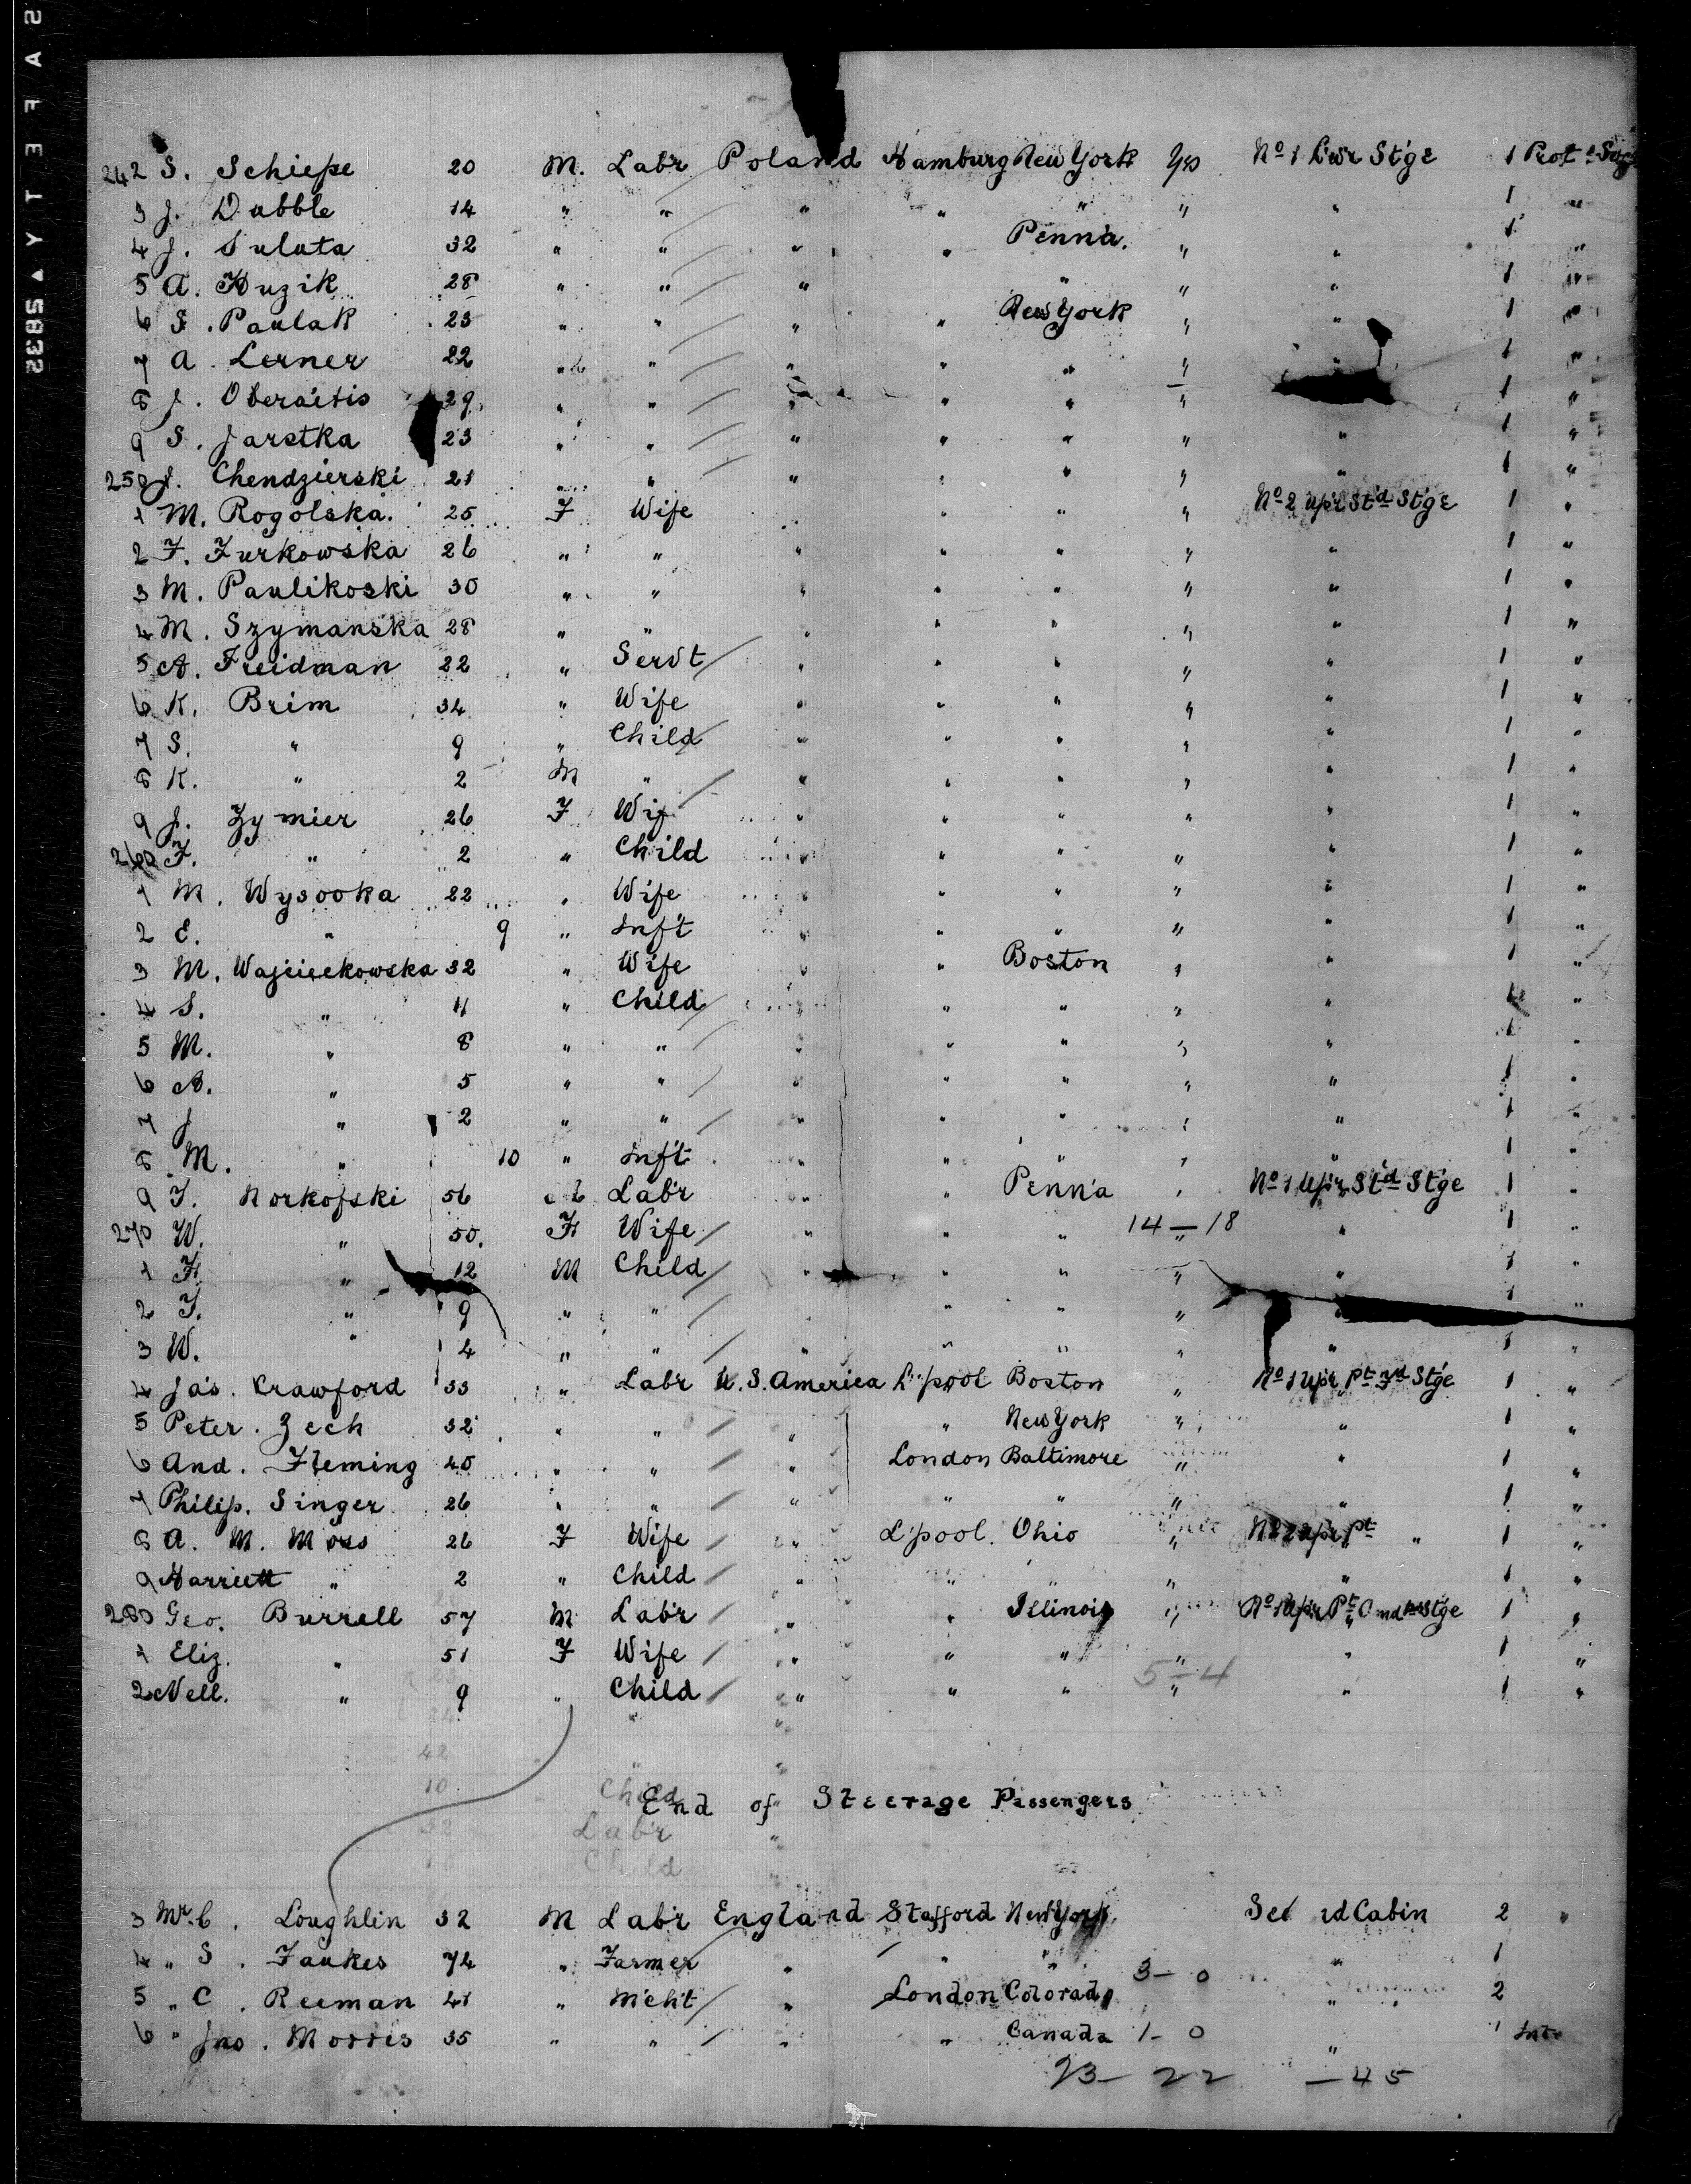 SAFETY ▲ 5832
242 S. Schiefse 20 M. Lab'r Poland Hamburg New York Yes No 1 Lw'r St'ge 1 Prot'd Soj
3 J. Dabble 14 " " " " " " " 1 "
4 J. Suluta 32 " " " " Penn'a. " " 1 "
5 A. Huzik 28 " " " " " " 1 "
6 S. Paulak 25 " " " " New York " " 1 "
7 A. Lerner 22 " " " " " " 1 "
8 J. Oberaitis 29 " " " " " " 1 "
9 S. Jarstka 23 " " " " " " " 1 "
250 J. Chendzierski 21 " " " " " " " 1 "
1 M. Rogolska. 25 F Wife " " " " No 2 up'r St'd St'ge 1 "
2 F. Zurkowska 26 " " " " " " " 1 "
3 M. Paulikoski 30 " " " " " " " 1 "
4 M. Szymanska 28 " " " " " " " 1 "
5 A. Freidman 22 " Serv't " " " " " 1 "
6 K. Brim 34 " Wife " " " " " 1 "
7 S. " 9 " Child " " " " " 1 "
8 K. " 2 M " " " " " " 1 "
9 J. Zymier 26 F Wif " " " " " 1 "
260 F. " 2 " Child " " " " " 1 "
1 M. Wysooka 22 " Wife " " " " " 1 "
2 E. " 9 " Inf't " " " " " 1 "
3 M. Wajciechowska 32 " Wife " " Boston " " 1 "
4 S. " 11 " Child " " " " " 1 "
5 M. " 8 " " " " " " " 1 "
6 A. " 5 " " " " " " " 1 "
7 J " 2 " " " " " " " 1 "
8 M. " 10 " Inf't " " " " " 1 "
9 J. Norkofski 56 Lab'r " " Penn'a " No 1 Up'r St'd St'ge 1 "
270 W. " 50. F Wife " " " 14 — 18 " " 1 "
1 F. " 12 M Child " " " " " 1 "
2 J. " 9 " " " " " " 1 "
3 W. " 4 " " " " " " " 1 "
4 Jas. Crawford 33 " Lab'r U.S. America L'pool Boston " No 1 Up'r Pt 3rd St'ge 1 "
5 Peter. Zech 32 " " " " New York " " 1 "
6 And. Fleming 40 " " " London Baltimore " " 1 "
7 Philip. Singer 26 " " " " " " " 1 "
8 A. M. Moss 26 F Wife " L'pool. Ohio " No 2 Up'r Pt " 1 "
9 Harriett " 2 " Child " " " " " 1 "
280 Geo. Burrell 57 M Lab'r " " Illinois " 1 "
1 Eliz. " 51 F Wife " " " " " 1 "
2 Nell. " 9 " Child " " " 5—4 " " 1 "
24
42
10 Child
End of Steerage Passengers
32 Lab'r "
10 Child
3 Mr. C. Loughlin 32 M Lab'r England Stafford New York Sec nd Cabin 2 "
4 " S. Faukes 74 " Farmer " " " " 1
3— 0
5 " C. Reeman 41 " M'cht " London Colorado " 2
6 " Jno. Morris 35 " " " " Canada 1— 0 " 1
23— 22 — 45